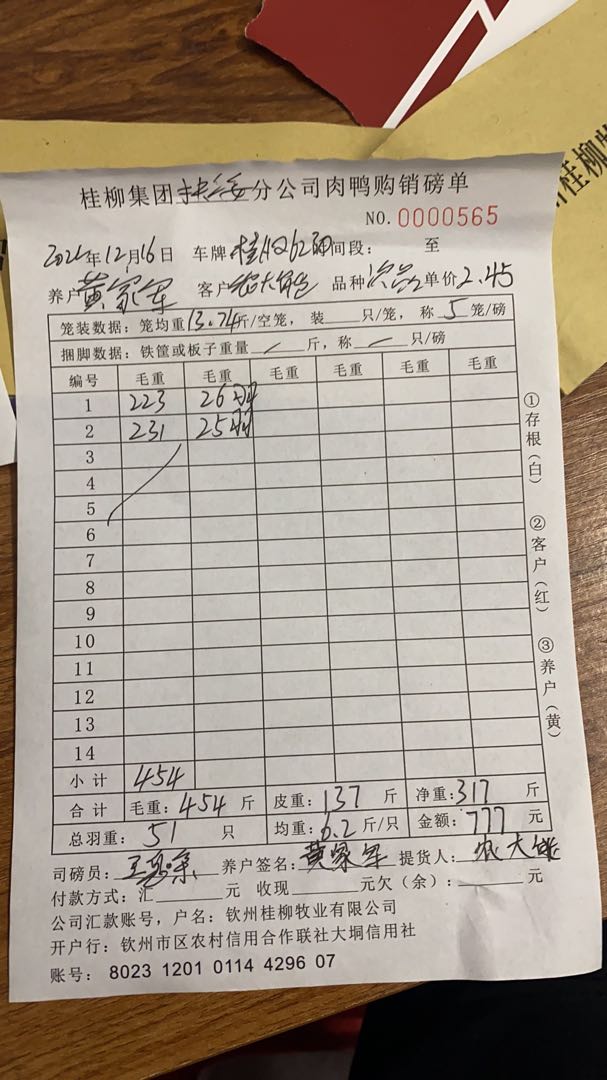 桂柳集团扶绥分公司肉鸭购销磅单
NO. 0000565
12月16日 车牌 间段: 至
养户 黄家军 客户 农大 品种 次品 单价 2.45
笼装数据: 笼均重 13.74 斤/空笼, 装 只/笼, 称 5 笼/磅
捆脚数据: 铁筐或板子重量 / 斤, 称 / 只/磅
编号 毛重 毛重 毛重 毛重 毛重 毛重
1 223 26羽
2 231 25羽
3
4
5
6
7
8
9
10
11
12
13
14
小计 454
合计 毛重: 454 斤 皮重: 137 斤 净重: 317 斤
总羽重: 51 只 均重: 6.2 斤/只 金额: 777 元
司磅员: 养户签名: 黄家军 提货人: 农大
付款方式: 汇 元 收现 元欠(余): 元
公司汇款账号, 户名: 钦州桂柳牧业有限公司
开户行: 钦州市区农村信用合作联社大垌信用社
账号: 8023 1201 0114 4296 07
①存根(白)
②客户(红)
③养户(黄)
桂柳牧